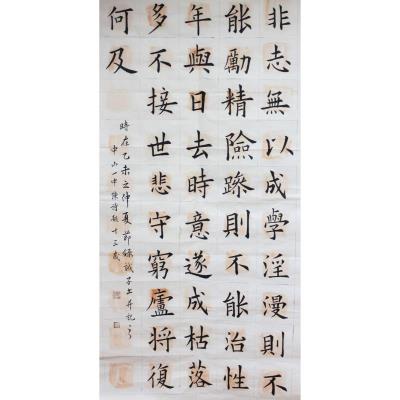 非志無以成學淫漫則不
能勵精險躁則不能治性
年與日去時意遂成枯落
多不接世悲守窮廬將復
何及
時在乙未之仲夏節錄誡子書并記之
中山一中陳十三歲